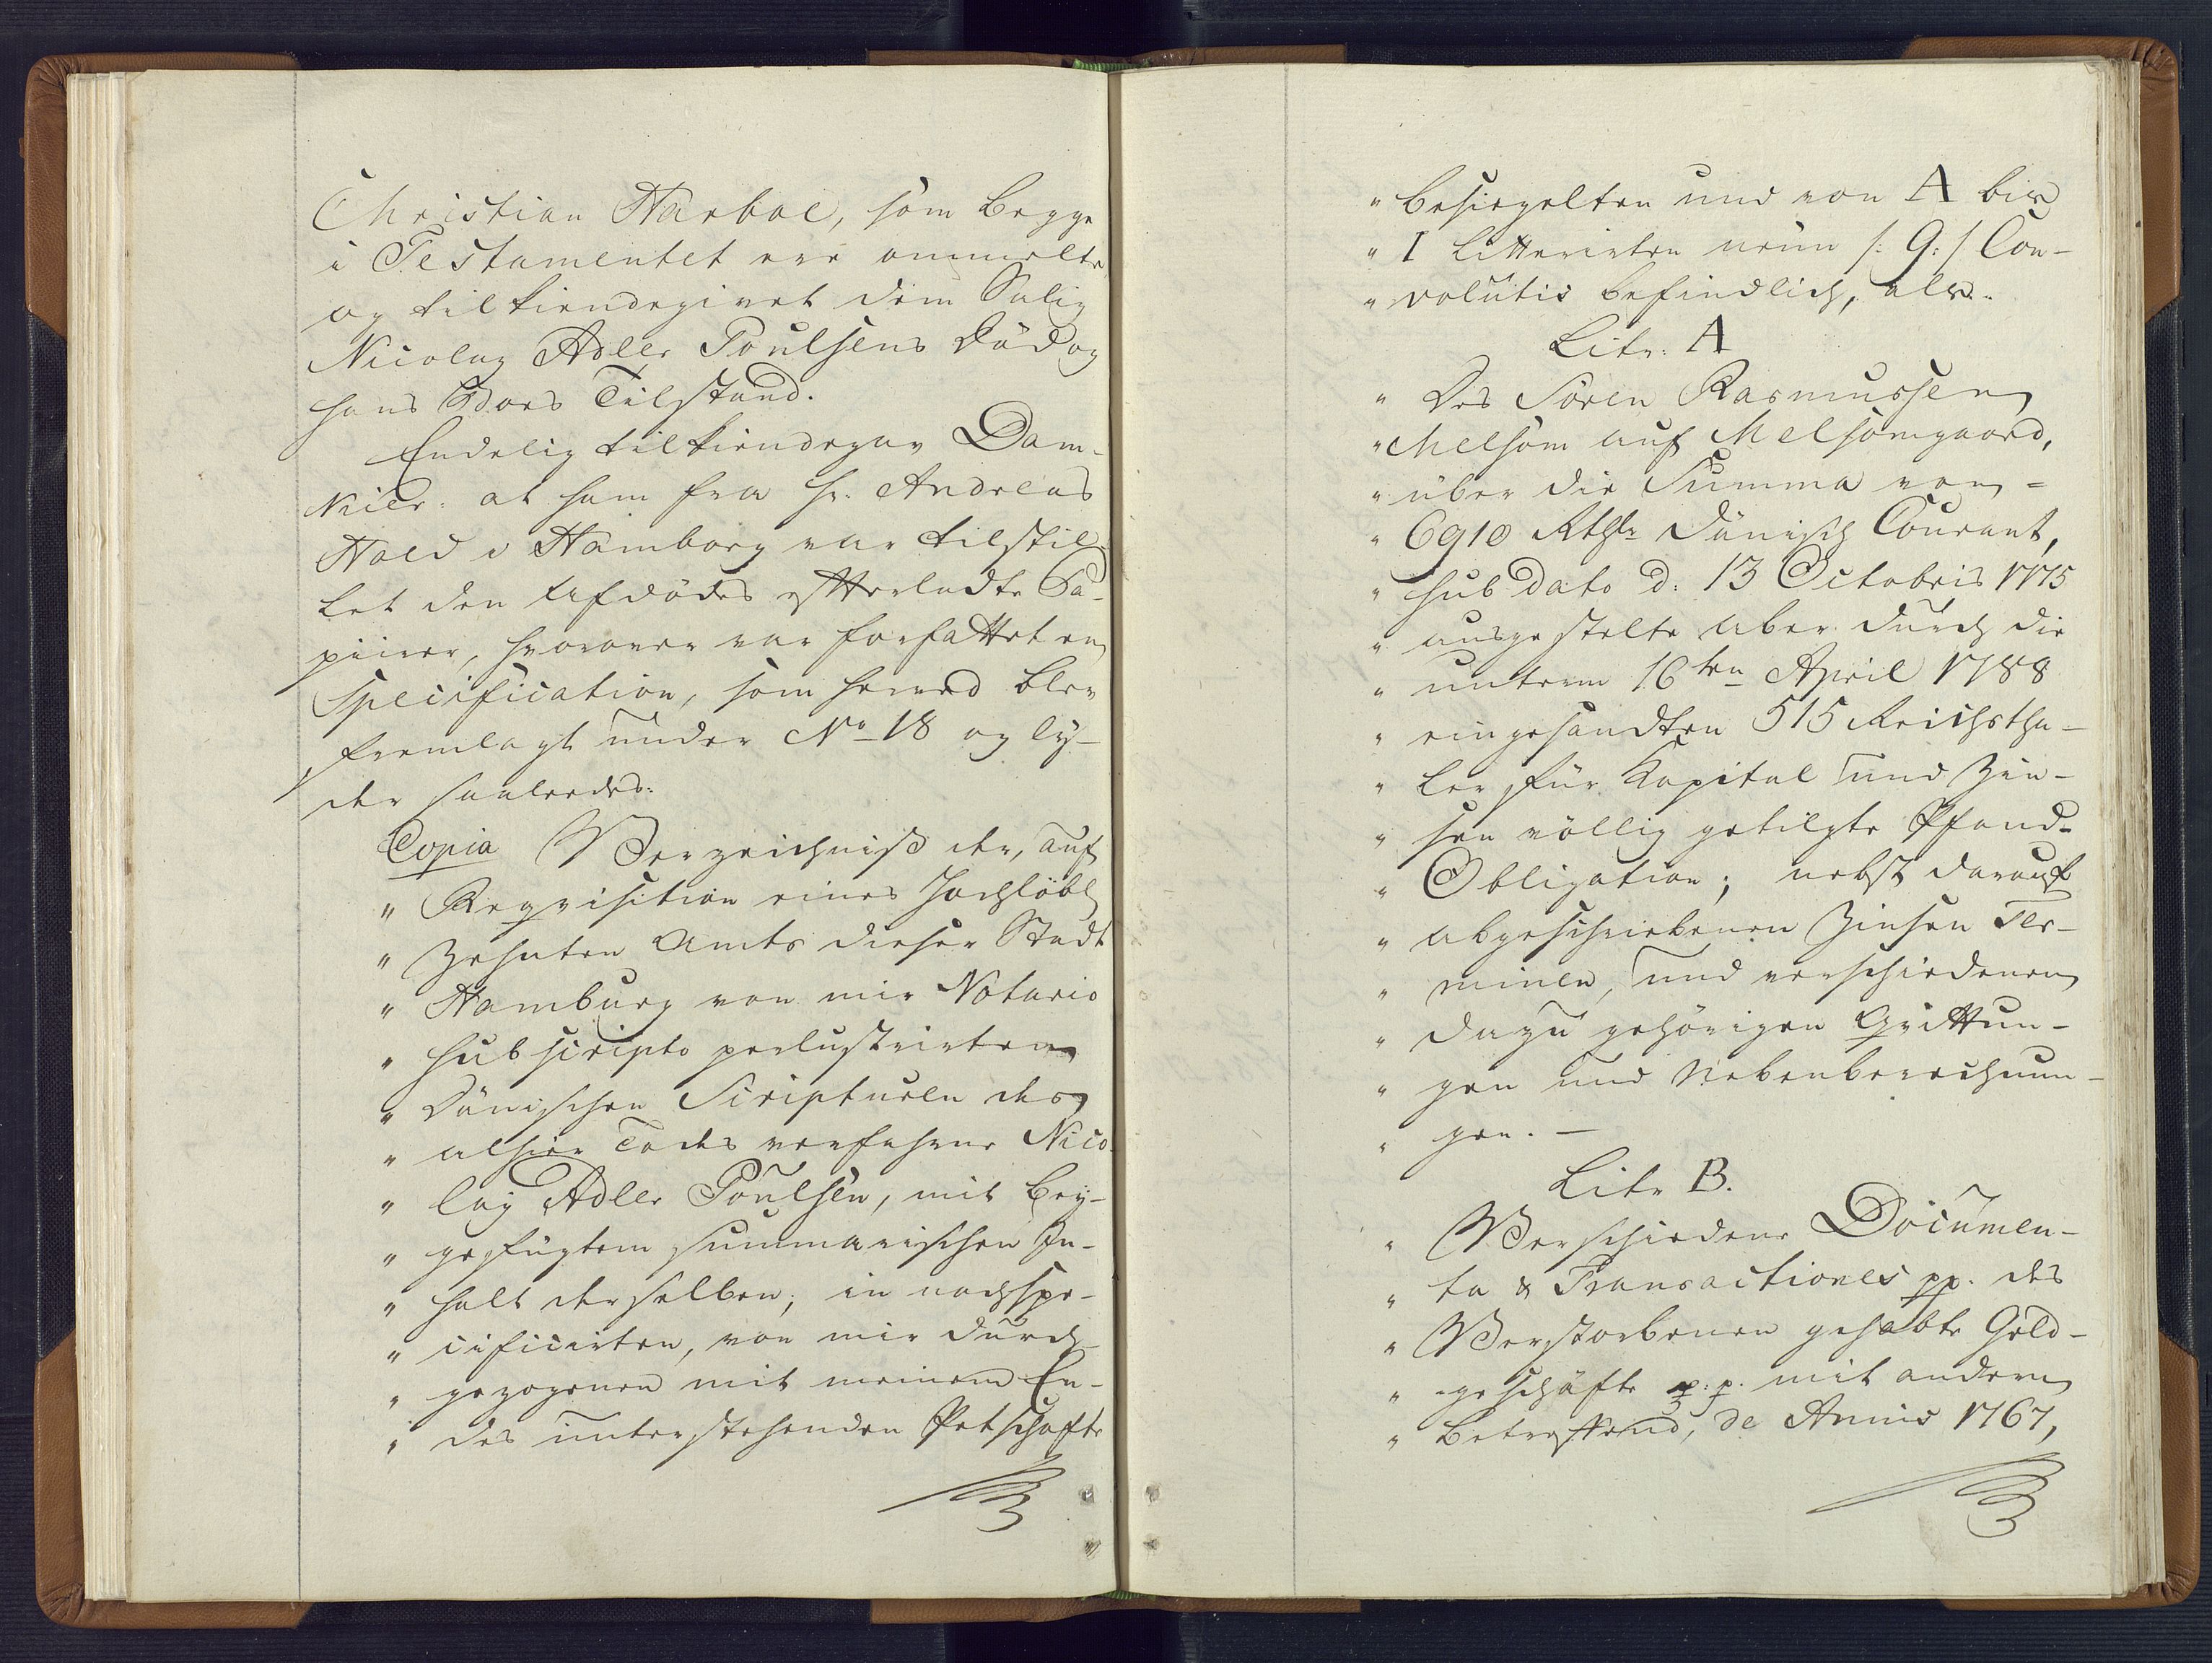 Christian Harboe, som begge
i Testamentet ere ommelte
og tilkiendegivet dem Salig
Nicolay Adler Poulsens Död og
hans Boes Tilstand.
Endelig tilkiendegav Dam-
kier: at ham fra Hr. Andreas
Hold i Hamborg var tilstil-
let den Afdödes efterladte Pa-
piirer, hvorover var forfattet en
Specification, som herved blev
fremlagt under No 18 og ly-
der saaledes:
Copia Verzeichniß der, auf
" Reqvisition eines Hochlöbl
" Zehnten Amts dieser Stadt
" Hamburg von mir Notario
" subscripto perlustrirten
" Dänischen Scripturen des
" alhier Todes verfahrne Nico-
" lay Adler Poulsen, mit bey-
" gefügtem summarischen In-
" halt derselben; in nachspe-
" cificirten, von mir durch-
" gezogenen mit meinem En-
" des unterstehenden Petschafte
" besiegelten und von A bis
" I litterirten neun /: 9: / Con-
" volutis befindlich, als..
Litr: A
" Des Sören Rasmussen
" Melsom auf Melsomgaard,
" über die Summa von -
" 6910 Rthlr Dänisch Courant,
" sub dato d: 13 Octobris 1775
" ausgestelte aber durch die
" unterm 16ten April 1788
" eingesandten 515 Reichstha-
" ler für Kapital und Zin-
" sen völlig getilgte Pfand-
" Obligation; nebst darauf
" abgeschriebenen Zinsen Ter-
" minen, und verschiedenen
" dazu gehörigen Qvittun-
" gen und Nebenberechnun-
" gen. -
Litr B.
" Verschiedene Documen-
" ta & Transactiones pp. des
" Verstorbenen gehabte Geld-
" geschäfte p: p. mit andern
" betreffend, de Annis 1767,